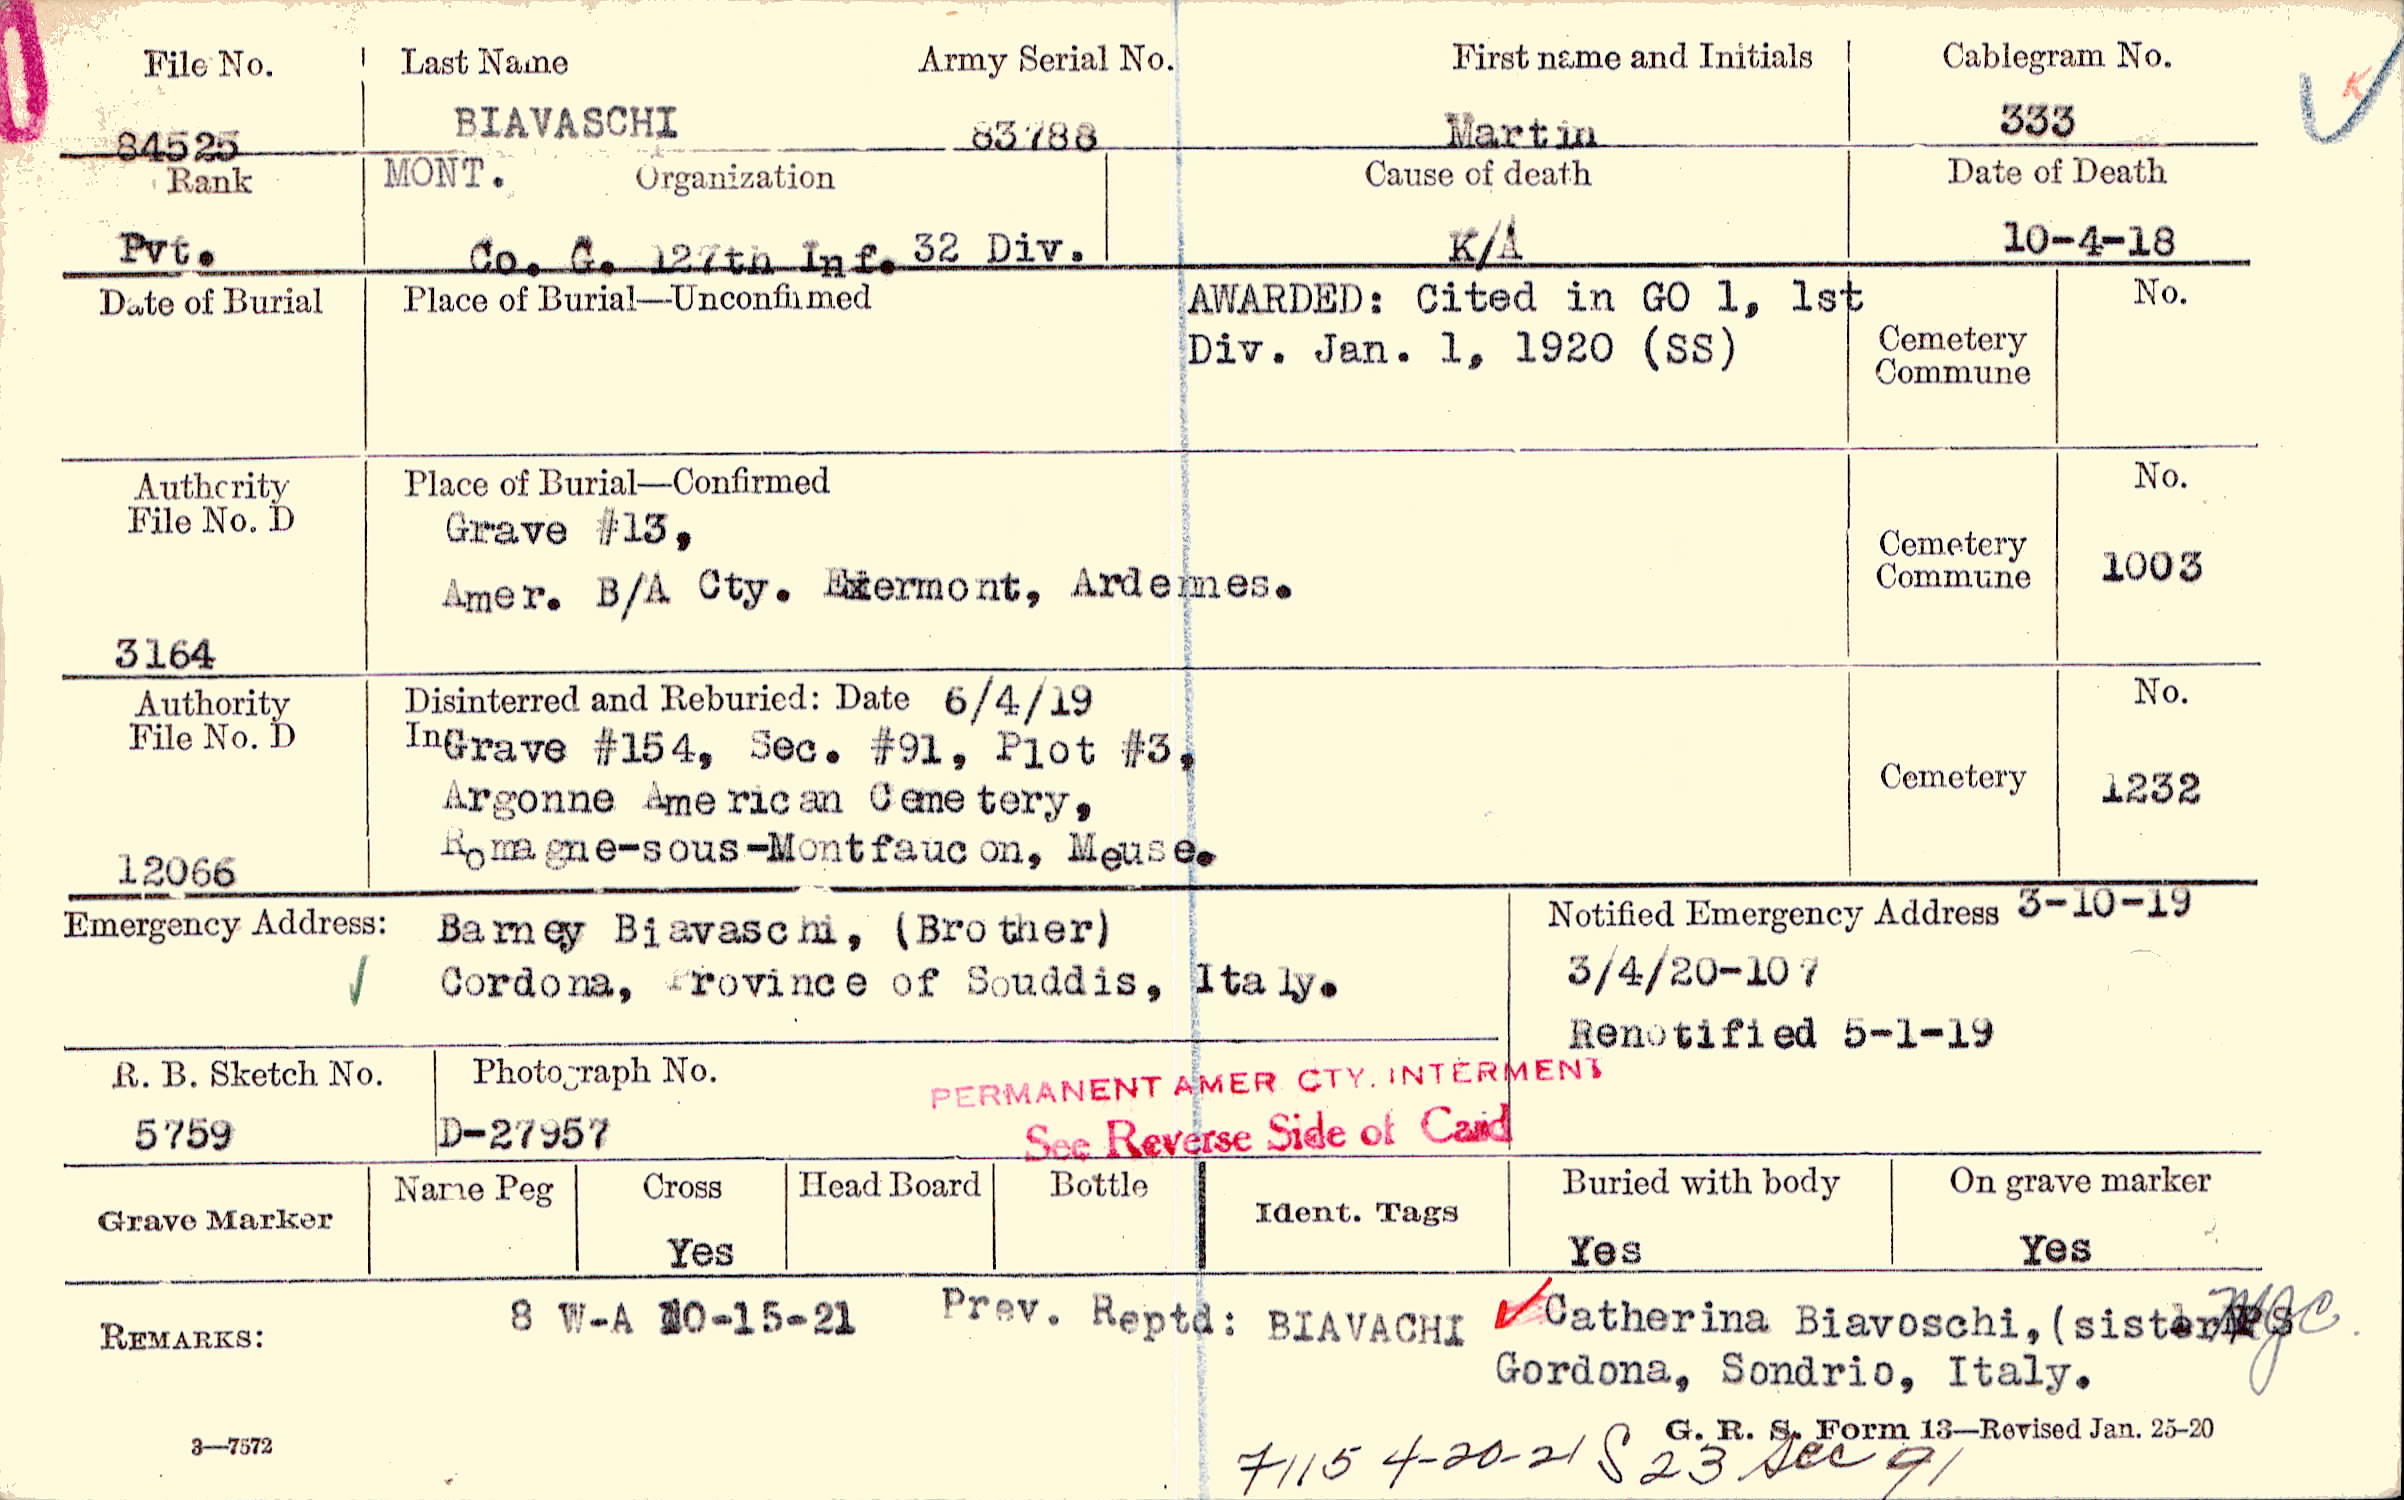 File No. Last Name Army Serial No. First name and Initials Cablegram No.
84525 BIAVASCHI 83788 Martin 333
Rank MONT. Organization Cause of death Date of Death
Pvt. Co. G. 127th Inf. 32 Div. K/A 10-4-18
Date of Burial Place of Burial—Unconfirmed AWARDED: Cited in GO 1, 1st No.
Div. Jan. 1, 1920 (SS) Cemetery
Commune
Authority Place of Burial—Confirmed No.
File No. D Grave #13, Cemetery
Amer. B/A Cty. Exermont, Ardennes. Commune 1003
3164
Authority Disinterred and Reburied: Date 6/4/19 No.
File No. D In Grave #154, Sec. #91, Plot #3,
Argonne American Cemetery, Cemetery 1232
Romagne-sous-Montfaucon, Meuse.
12066
Emergency Address: Barney Biavaschi, (Brother) Notified Emergency Address 3-10-19
Cordona, Province of Souddis, Italy. 3/4/20-107
Renotified 5-1-19
R. B. Sketch No. Photograph No. PERMANENT AMER CTY. INTERMENT
5759 D-27957 See Reverse Side of Card
Grave Marker Name Peg Cross Head Board Bottle Ident. Tags Buried with body On grave marker
Yes Yes Yes
REMARKS: 8 W-A 10-15-21 Prev. Reptd: BIAVACHI Catherina Biavoschi, (sister
Gordona, Sondrio, Italy.
G. R. S. Form 13—Revised Jan. 25-20
3—7572 7115 4-20-21 S 23 Sec 91